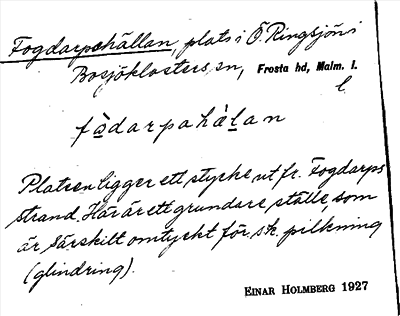 Fogdarpshällan, plats i Ö. Ringsjön i
Bosjöklosters sn, Frosta hd, Malm. l.
l
fòdarpahàlan
Platsen ligger ett stycke ut fr. Fogdarps
strand. Här är ett grundare ställe, som
är särskilt omtyckt för s.k. pilkning
(glindring).
EINAR HOLMBERG 1927